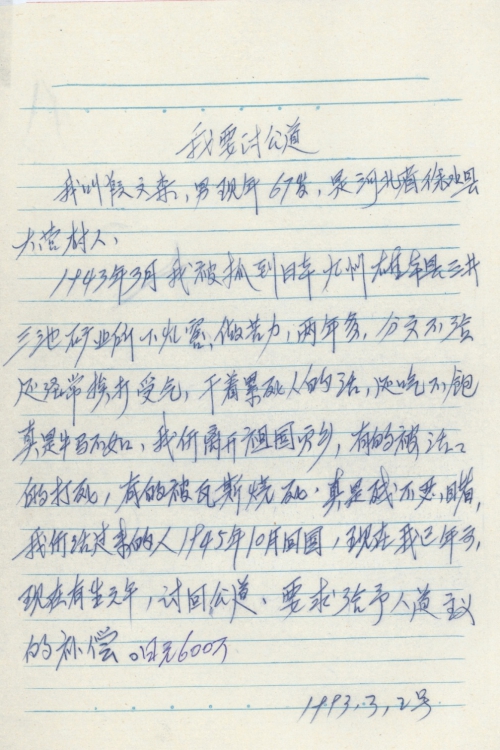 我要讨公道
我叫段文来,男现年67岁,是河北省徐水县
大营村人、
1943年3月我被抓到日本九州 县三井
三池矿业所 做苦力,两年多,分文不给
还经常挨打受气,干着累死人的活,还吃不饱
真是牛马不如、我们离开祖国 乡,有的被活
的打死,有的被瓦斯烧死、真是 睹,
我们活过来的人1945年10月回国,现在我已年 ,
现在有生之年,讨回公道、要求给予人道主义
的补偿。日元600万
1993.3,2号